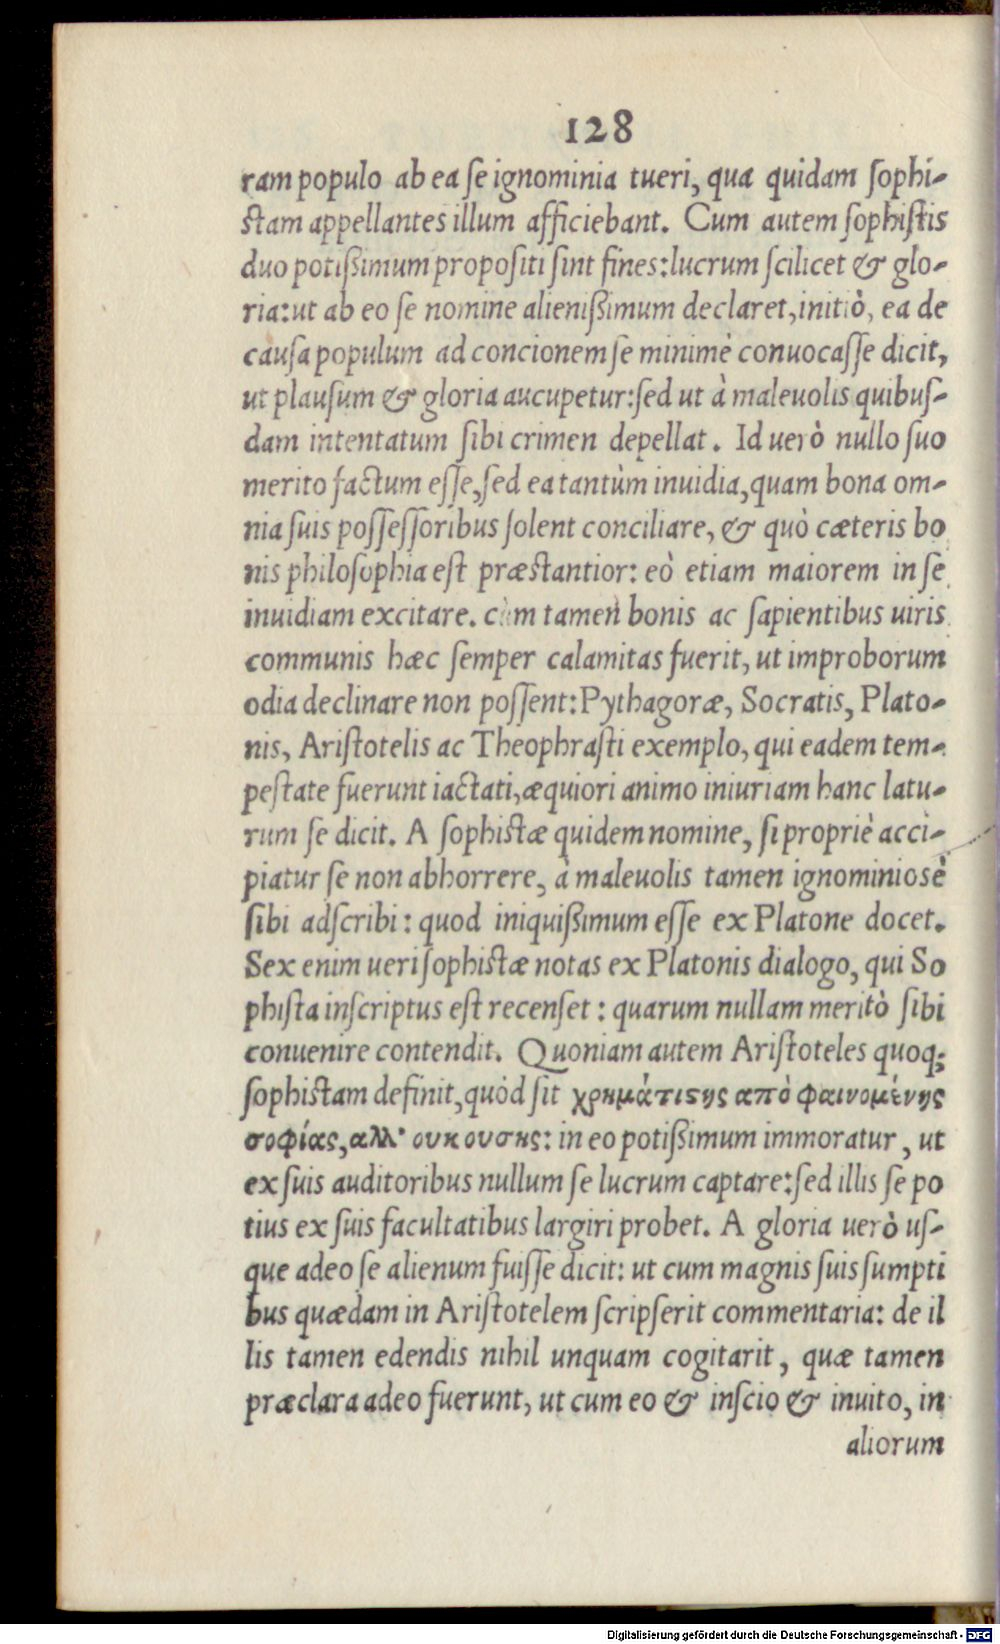 128
ram populo ab ea se ignominia tueri, qua quidam sophi-
stam appellantes illum afficiebant. Cum autem sophistis
duo potißimum propositi sint fines: lucrum scilicet & glo-
ria: ut ab eo se nomine alienißimum declaret, initiò, ea de
causa populum ad concionem se minimè conuocasse dicit,
ut plausum & gloria aucupetur: sed ut à maleuolis quibus-
dam intentatum sibi crimen depellat. Id uerò nullo suo
merito factum esse, sed ea tantùm inuidia, quam bona om-
nia suis possessoribus solent conciliare, & quò cæteris bo
nis philosophia est præstantior: eò etiam maiorem in se
inuidiam excitare. cùm tamen bonis ac sapientibus uiris
communis hæc semper calamitas fuerit, ut improborum
odia declinare non possent: Pythagoræ, Socratis, Plato-
nis, Aristotelis ac Theophrasti exemplo, qui eadem tem-
pestate fuerunt iactati, æquiori animo iniuriam hanc latu-
rum se dicit. A sophistæ quidem nomine, si propriè acci-
piatur se non abhorrere, à maleuolis tamen ignominiosè
sibi adscribi: quod iniquißimum esse ex Platone docet.
Sex enim ueri sophistæ notas ex Platonis dialogo, qui So
phista inscriptus est recenset: quarum nullam meritò sibi
conuenire contendit. Quoniam autem Aristoteles quoq;
sophistam definit, quòd sit χρημάτιϛης απὸ φαινομένης
σοφίας, αλλ' ουκ ουσης: in eo potißimum immoratur, ut
ex suis auditoribus nullum se lucrum captare: sed illis se po
tius ex suis facultatibus largiri probet. A gloria uerò us-
que adeo se alienum fuisse dicit: ut cum magnis suis sumpti
bus quædam in Aristotelem scripserit commentaria: de il
lis tamen edendis nihil unquam cogitarit, quæ tamen
præclara adeo fuerunt, ut cum eo & inscio & inuito, in
aliorum
Digitalisierung gefördert durch die Deutsche Forschungsgemeinschaft - DFG